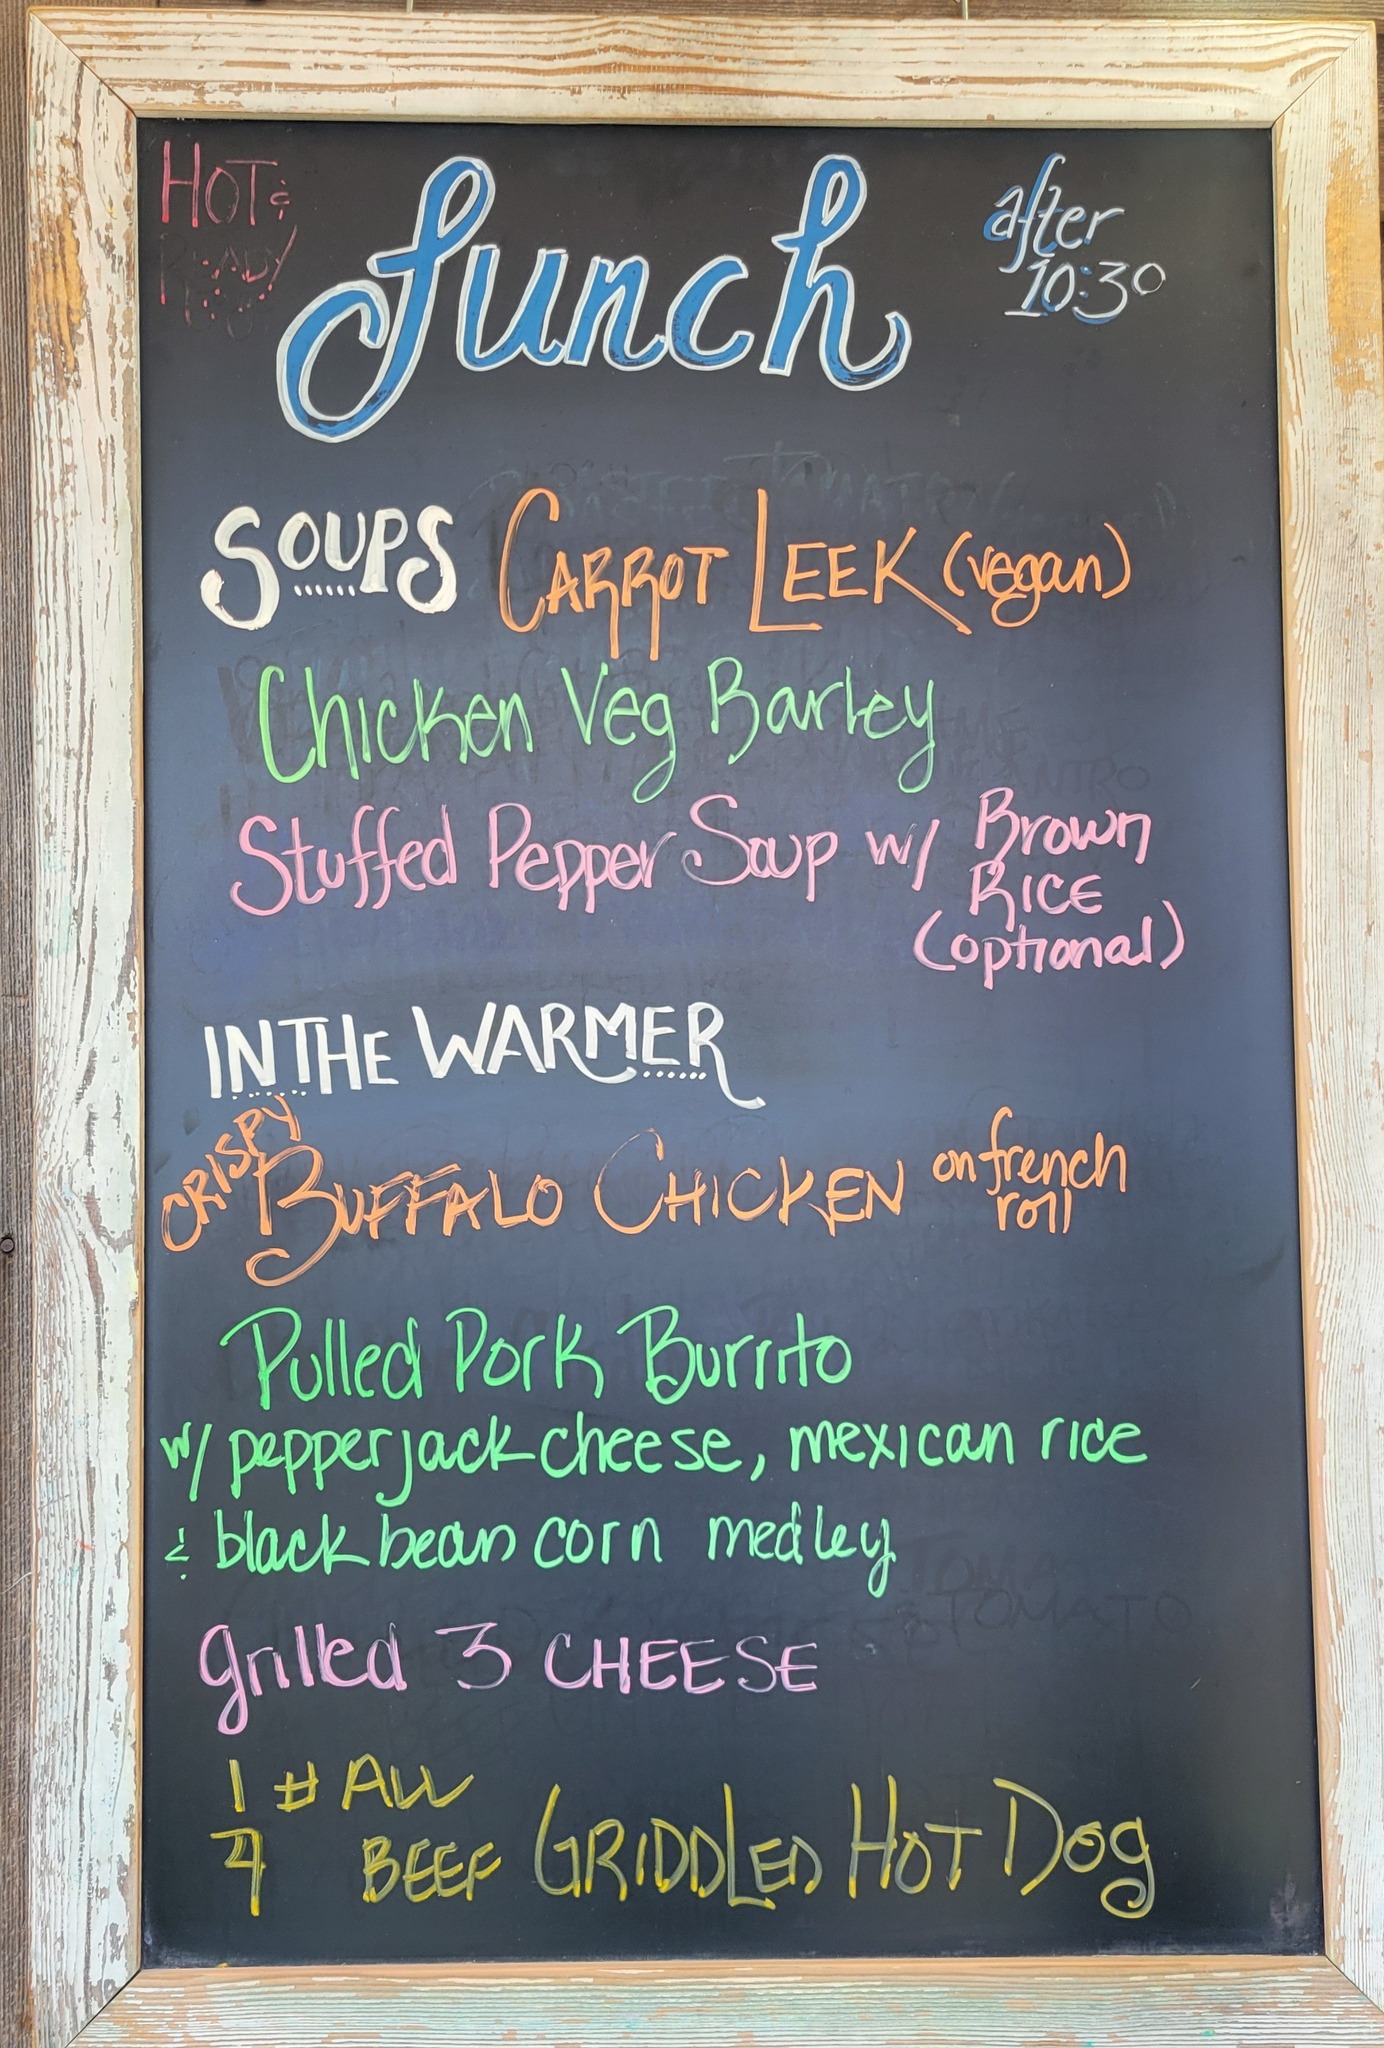 HOT &
READY
Lunch
after
10:30
SOUPS CARROT LEEK (vegan)
Chicken Veg Barley
Stuffed Pepper Soup w/ Brown
RICE
(optional)
IN THE WARMER
CRISPY BUFFALO CHICKEN on french
roll
Pulled Pork Burrito
w/ pepperjack cheese, mexican rice
& black bean corn medley
grilled 3 CHEESE
1/4 # ALL
BEEF GRIDDLED HOT DOG